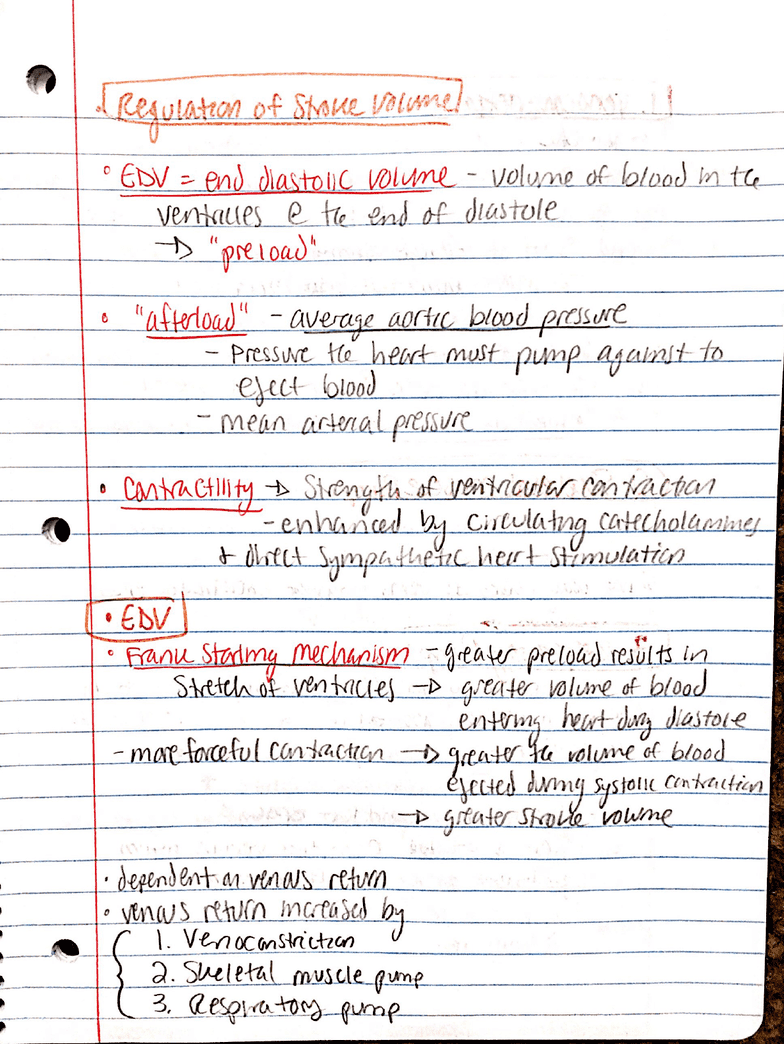 • Regulation of Stroke Volume
° EDV = end diastolic volume - volume of blood in the
ventricles @ the end of diastole
→ "preload"
• "afterload" - average aortic blood pressure
- Pressure the heart must pump against to
eject blood
- mean arterial pressure
• Contractility → Strength of ventricular contraction
- enhanced by circulating catecholamines
+ direct sympathetic heart stimulation
• EDV
° Frank Starling mechanism - greater preload results in
Stretch of ventricles → greater volume of blood
entering heart during diastole
- more forceful contraction → greater the volume of blood
ejected during systolic contraction
→ greater stroke volume
• dependent on venous return
• venous return increased by
1. Venoconstriction
2. Skeletal muscle pump
3. Respiratory pump